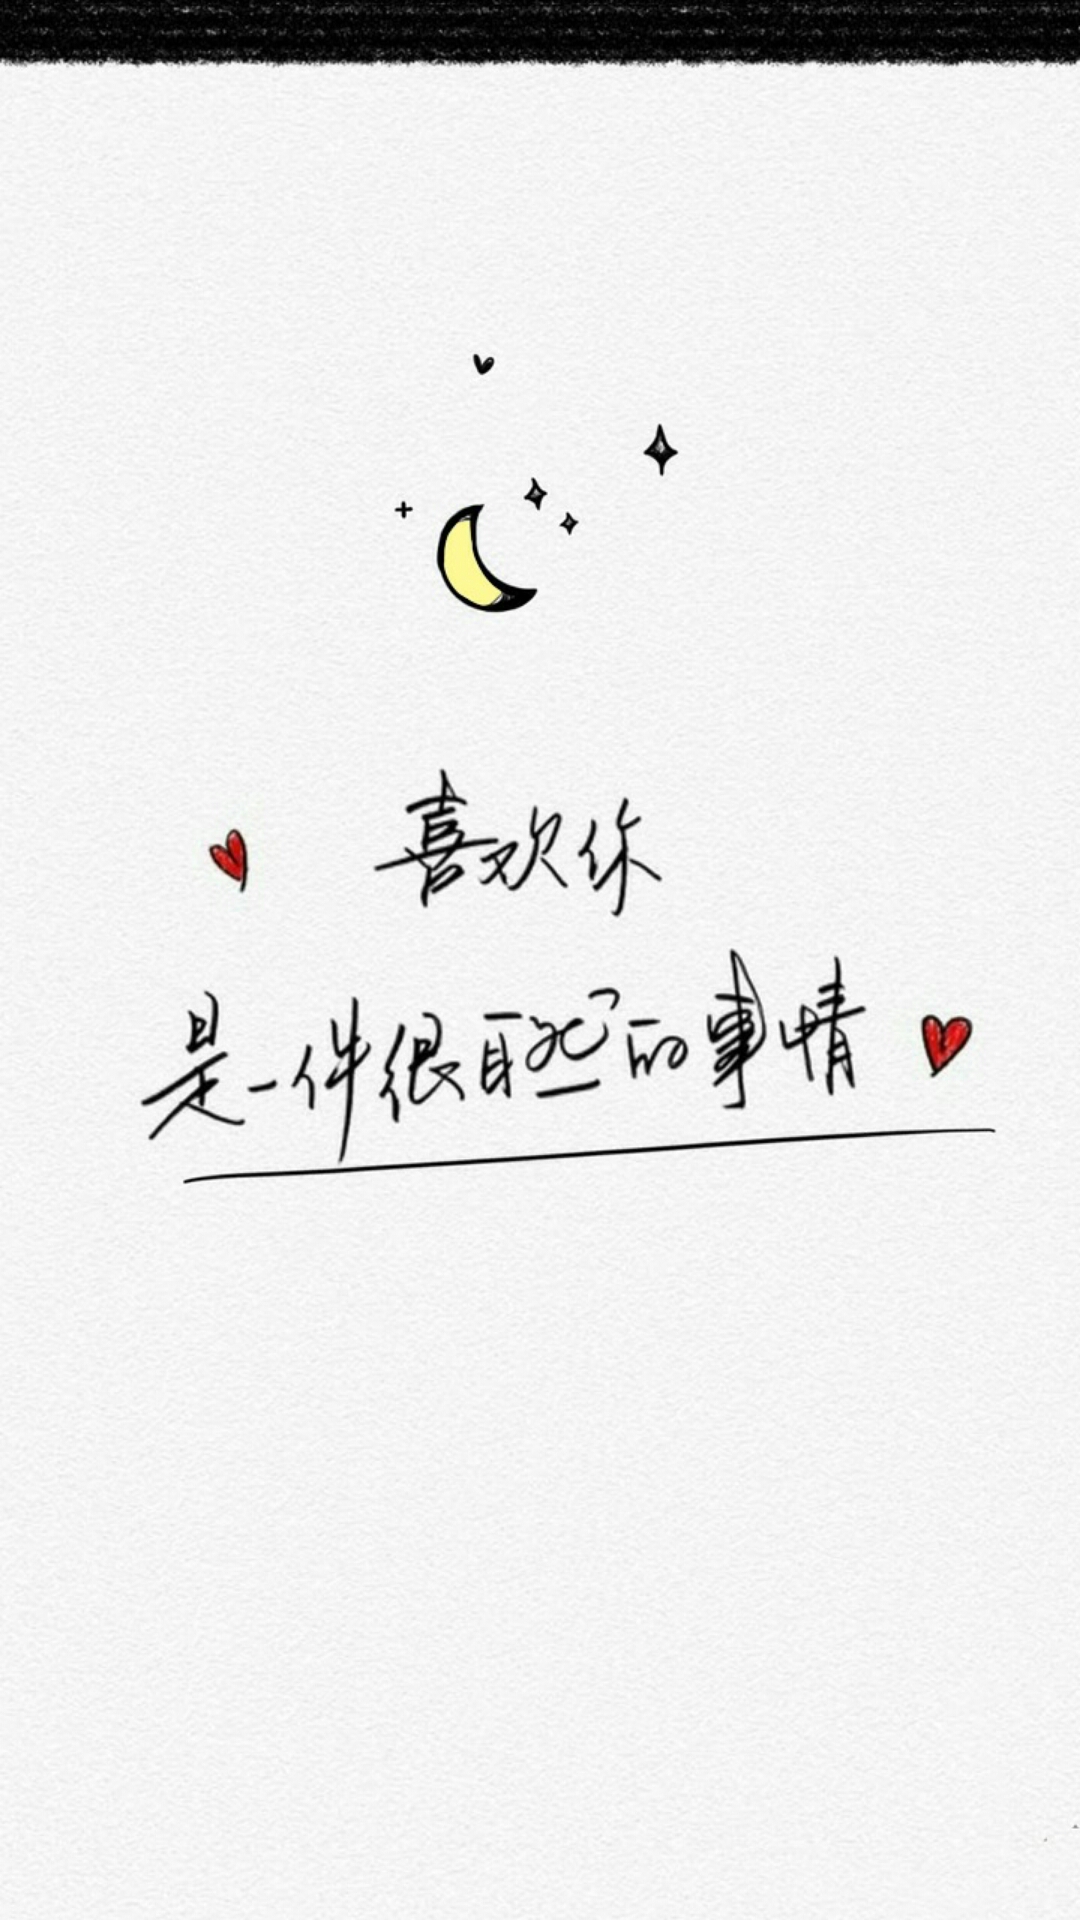 喜欢你
是一件很自然的事情